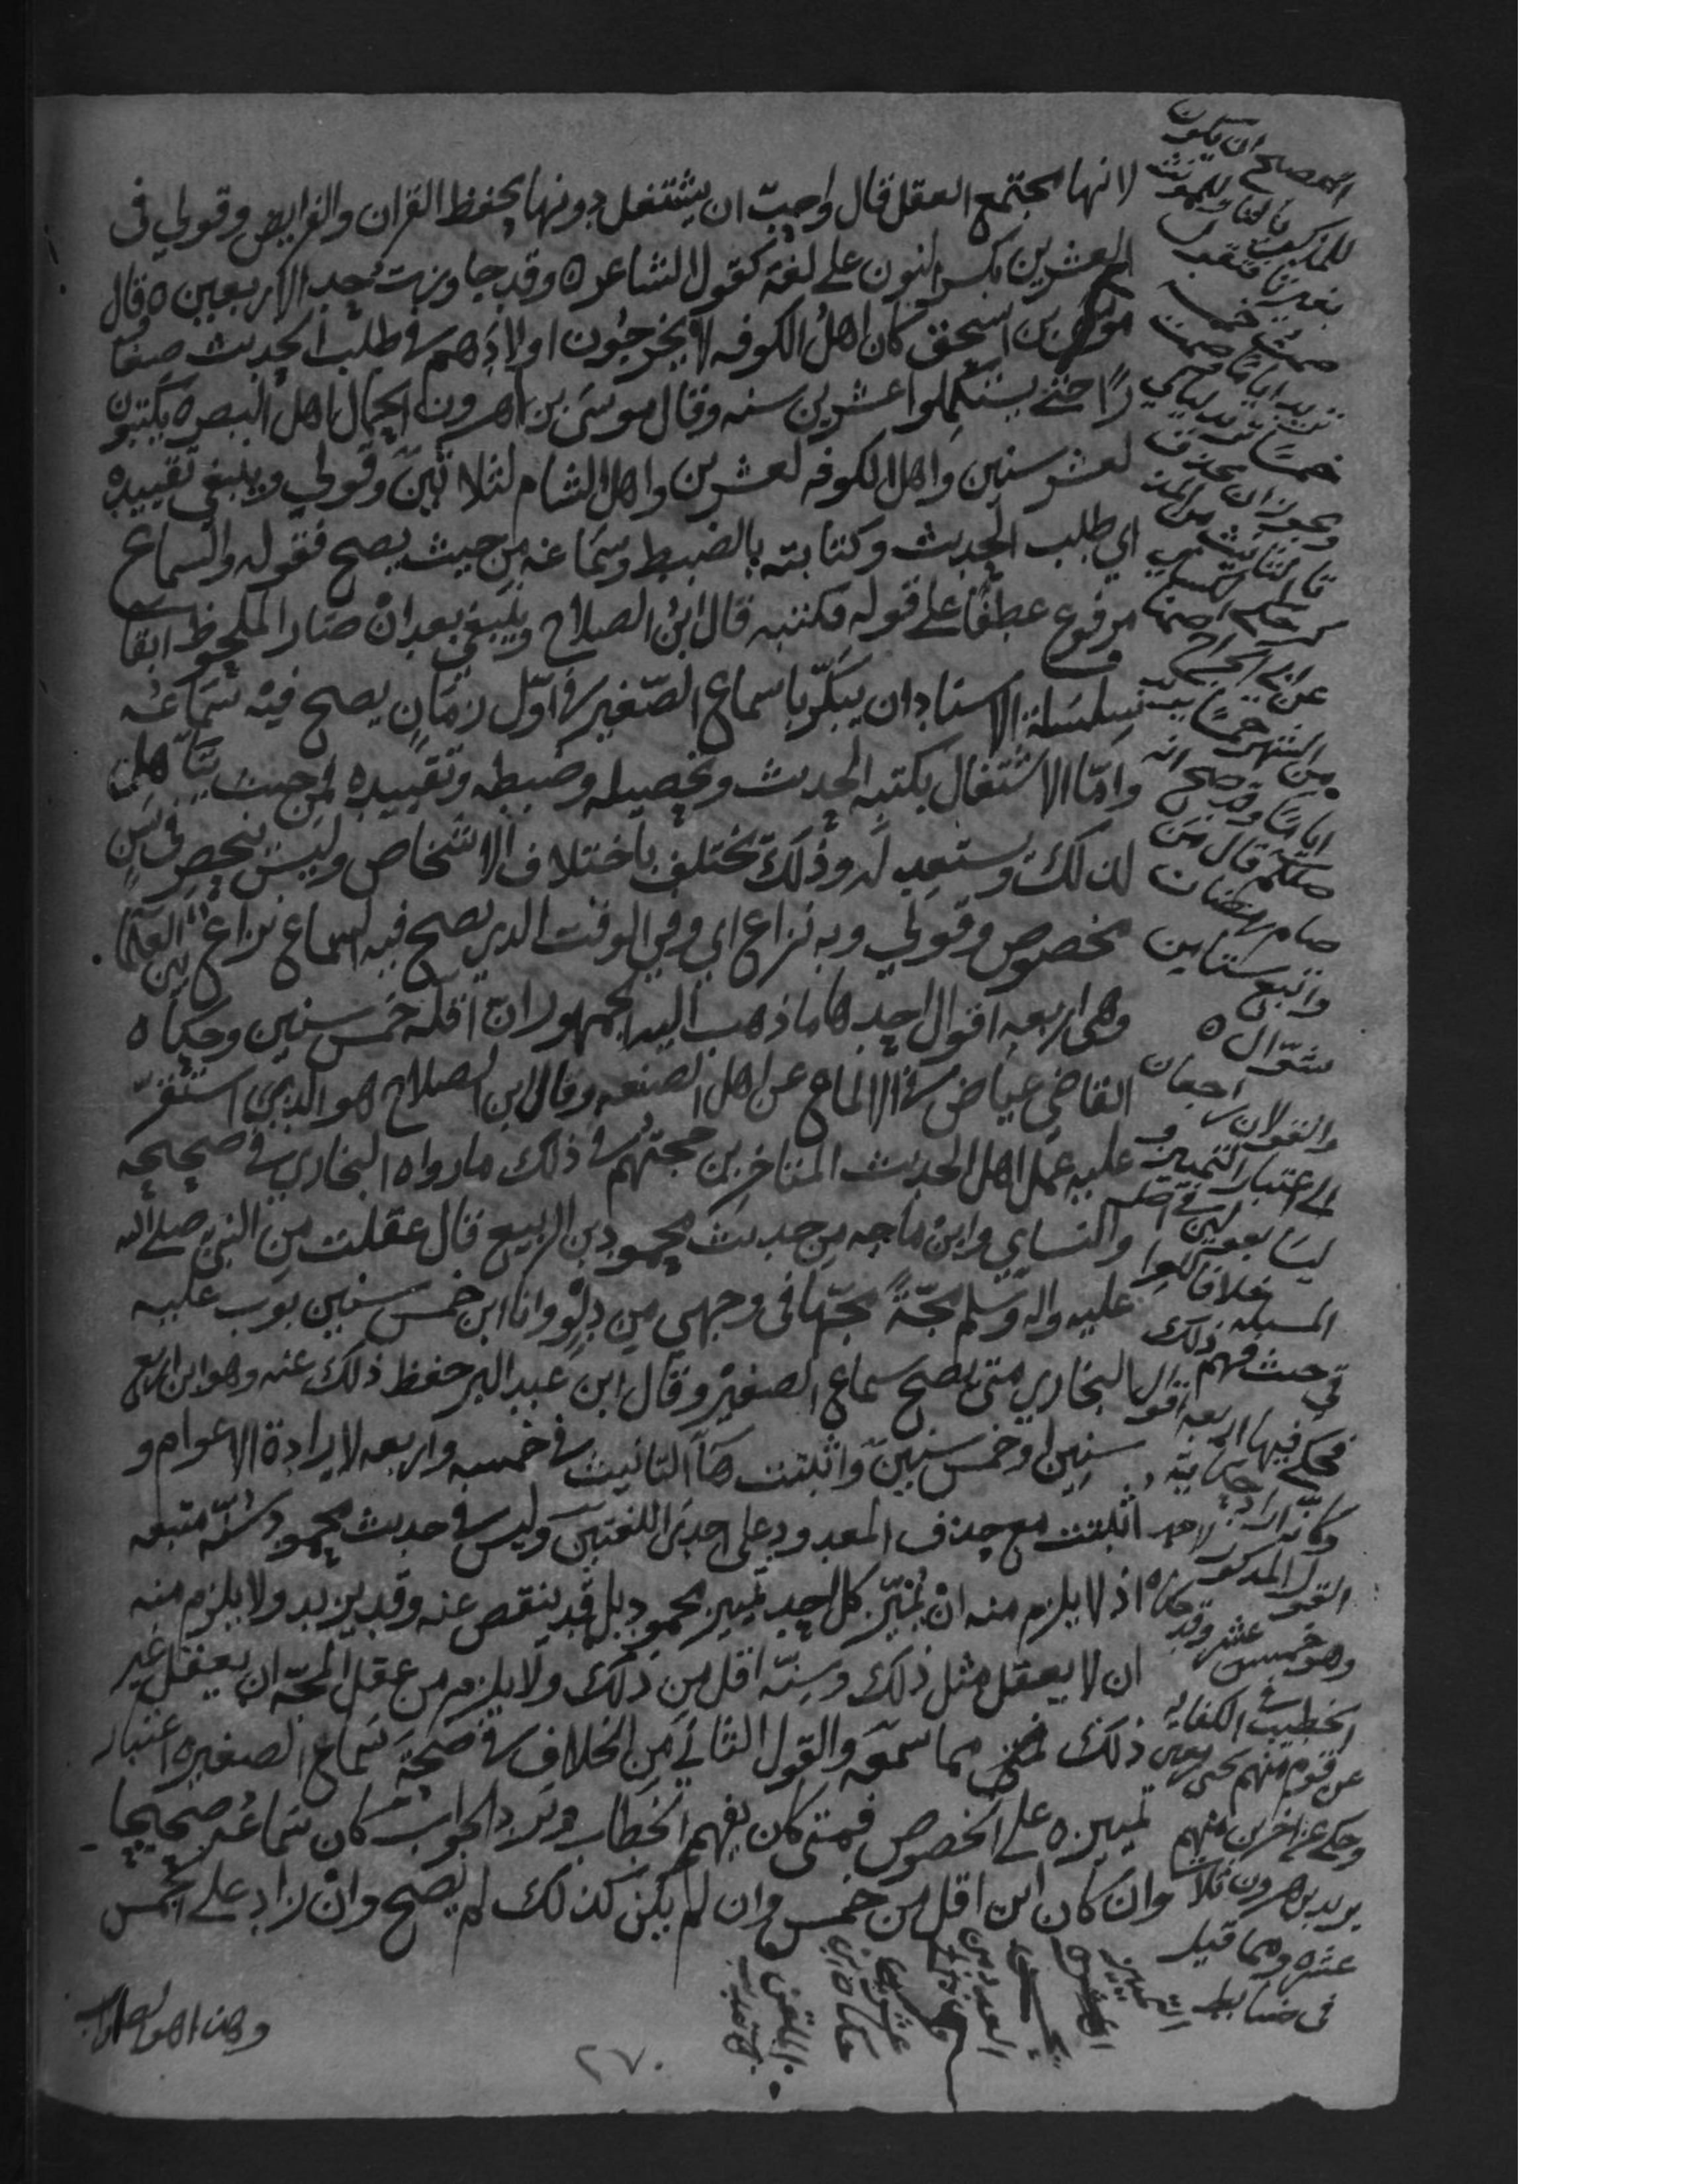 لانها مجتمع العقل قال واحبّ ان يشتغل دونها بحفظ القران والفرايض وقولي في
العشرين بكسر النون على لغة كقول الشاعر ه وقد جاوزت حد الاربعين ه قال
موسى بن اسحق كان اهل الكوفه لا يخرجون اولادهم في طلب الحديث صغا
رًا حتى يستكملوا عشرين سنه وقال موسى بن هرون الحمال اهل البصره يكتبون
لعشر سنين واهل الكوفه لعشرين واهل الشام لثلاثين وقولي وينبغي تقييده
اي طلب الحديث وكتابته بالضبط وسماعه من حيث يصح فقوله والسماع
مرفوع عطفًا على قوله وكتبه قال ابن الصلاح وينبغي بعد ان صار الملحوظ ابقا
سلسلة الاسناد ان يبكّر باسماع الصغير في اوّل زمان يصح فيه سماعه
وامّا الاشتغال بكتبه الحديث وتحصيله وضبطه وتقييده فمن حيث يتاهل
لذلك ويستعد له وذلك يختلف باختلاف الاشخاص وليس ينحصر في سن
مخصوص وقولي وبه نزاع اي وفي الوقت الذي يصح فيه السماع نزاع بين العلما
وهي اربعه اقوال احدها ما ذهب اليه الجمهور ان اقله خمس سنين وحكاه
القاضي عياض في الالماع عن اهل الصنعه وقال ابن الصلاح هو الذي استقر
عليه عمل اهل الحديث المتاخرين وحجتهم في ذلك ما رواه البخاري في صحيحه
والنساي وابن ماجه من حديث محمود بن الربيع قال عقلت من النبي صلى الله
عليه واله وسلم مجّةً مجّها في وجهي من دلو وانا ابن خمس سنين بوب عليه
البخاري متى يصح سماع الصغير وقال ابن عبد البر حفظ ذلك عنه وهو ابن اربع
سنين او خمس سنين واثبتت هآ التانيث في خمسه واربعه لارادة الاعوام و
اثبتت مع حذف المعدود على احدى اللغتين وليس في حديث محمود سنّه متبعه
اذ لا يلزم منه ان يُميّز كل احد تمييز محمود بل قد ينقص عنه وقد يزيد ولا يلزم منه
ان لا يعقل مثل ذلك وسنّه اقل من ذلك ولا يلزم من عقل المجّه ان يعقل غير
ذلك مما سمعه والقول الثاني من الخلاف في صحة سماع الصغير ه اعتبار
تمييزه على الخصوص فمتى كان يفهم الخطاب ويرد الجواب كان سماعه صحيحا
وان كان ابن اقل من خمس وان لم يكن كذلك لم يصح وان زاد على الخمس
وهذا هو الصواب
ان يكون
للمذكر
بالتا وللمونث
بغير تا فتقول
صمت خمسه
تريد اياما وصمت
خمسًا تريد ليالي
ويجوز ان تحذف
تا التانيث من المذ
كر حكى الكساي
عن ابي الجراح صمنا
من الشهر خمسًا يريد
اياما وقد صح انه
صلعم قال من
صام رمضان
واتبعه ستا من
شوال ه
والقولان راجعان
الى اعتبار التمييز و
ليسا بقولين في اصل
المسيله خلافا
فحكى فيها اربعه اقوال
وكانه اراد
القول المذكور
وهو خمس عشره وقد حكاه
الخطيب في الكفايه
عن قوم منهم يحيى بن معين
وحكى عن اخرين منهم
يزيد بن هرون ثلاث
عشره ومما قيل
في ضابط التمييز
٢٧٠